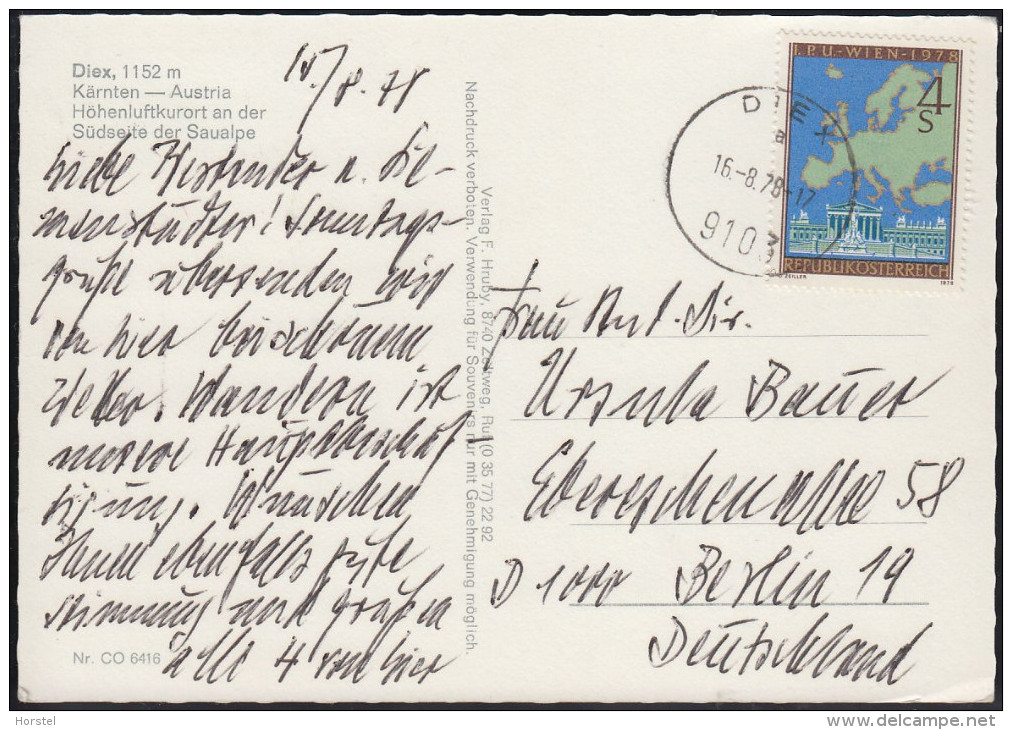 Diex, 1152 m
Kärnten — Austria
Höhenluftkurort an der
Südseite der Saualpe
/8.78
Liebe Westender u. Sie-
mensstädter! Sonntags-
grüße übersenden wir
von hier bei schönem
Wetter. Wandern ist
unsere Hauptbeschäf-
tigung. Wünschen
Ihnen ebenfalls gute
Stimmung und grüßen
alle 4 von hier
Nr. CO 6416
Verlag F. Hruby, 8740 Zeltweg, Ruf (0 35 77) 22 92
Nachdruck verboten. Verwendung für Souvenirs nur mit Genehmigung möglich.
I.P.U.-WIEN-1978
4
S
REPUBLIK ÖSTERREICH
ZEILLER
1978
DIEX
a
16.-8.78-17
9103
Frau Dir.
Ursula Bauer
Ebereschenallee 58
D 1000 Berlin 19
Deutschland
Horstel
www.delcampe.net